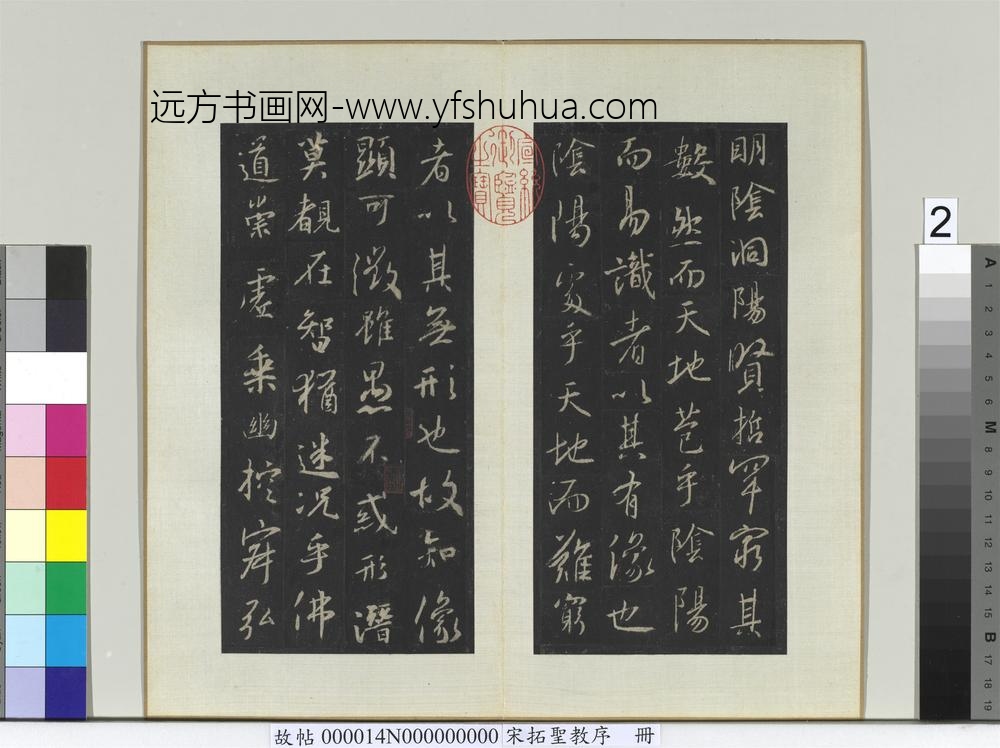 远方书画网-www.yfshuhua.com
明陰洞陽賢哲罕窮其
數然而天地苞乎陰陽
而易識者以其有像也
陰陽處乎天地而難窮
者以其無形也故知像
顯可徵雖愚不惑形潛
莫覩在智猶迷況乎佛
道崇虛乘幽控寂弘
宣統御覽之寶
2
A
1
2
3
4
5
6
M
8
9
10
11
12
13
14
15
B
17
18
19
故帖 000014N000000000 宋拓聖教序 冊